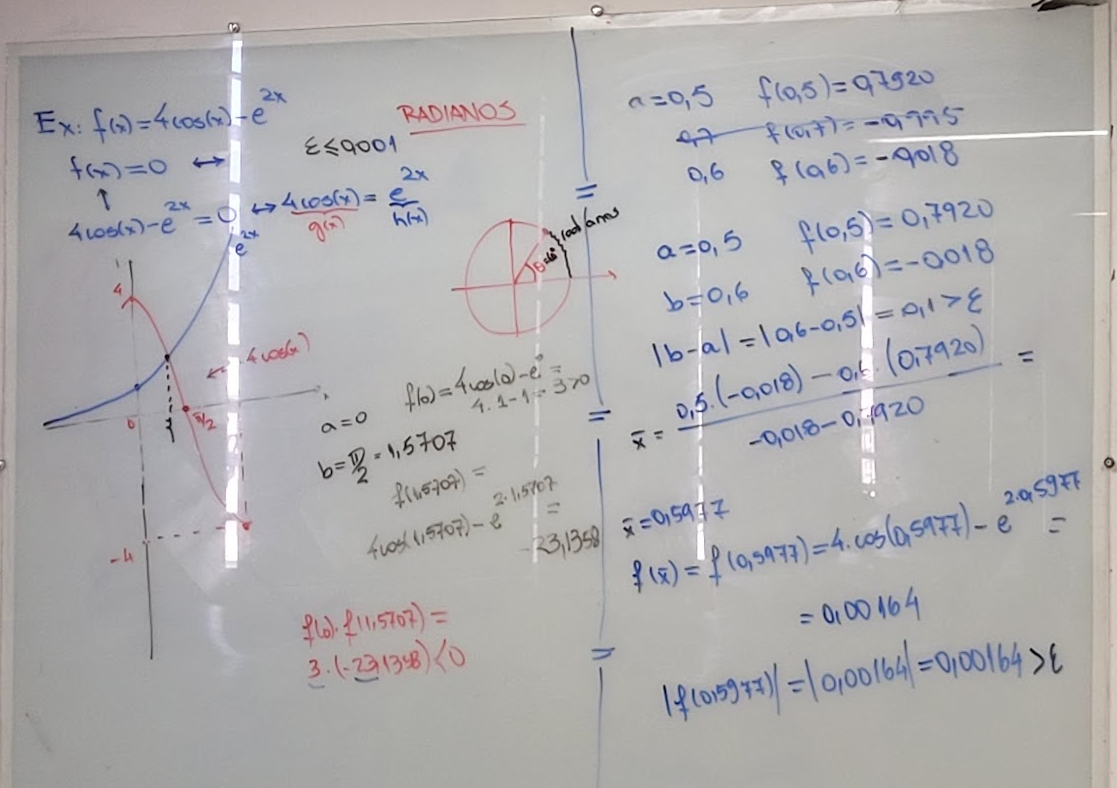 Ex: f(x)=4cos(x)-e^2x
RADIANOS
f(x)=0 ↔
ε≤0,001
↑
4cos(x)-e^2x=0 ↔ 4cos(x)=e^2x
g(x) h(x)
e^2x
4
4cos(x)
0
π/2
-4
θ=
radianos
a=0
f(0)=4cos(0)-e^0=
4.1-1=3>0
b=π/2=1,5707
f(1,5707)=
4cos(1,5707)-e^2.1,5707=
-23,1358
f(0).f(1,5707)=
3.(-23,1358)<0
a=0,5 f(0,5)=0,7920
0,7 f(0,7)=-0,9995
0,6 f(0,6)=-0,018
a=0,5 f(0,5)=0,7920
b=0,6 f(0,6)=-0,018
|b-a|=|0,6-0,5|=0,1>ε
x̄=
0,5.(-0,018)-0,6.(0,7920)
=
-0,018-0,7920
x̄=0,5977
f(x̄)=f(0,5977)=4.cos(0,5977)-e^2.0,5977=
=0,00164
|f(0,5977)|=|0,00164|=0,00164>ε